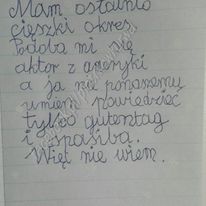 Mam ostatnio
cięszki okres.
Podoba mi się
aktor z ameryki
a ja nie po
umiem powiedzieć
tylko gutentag
i spasiba.
Więc nie wiem.